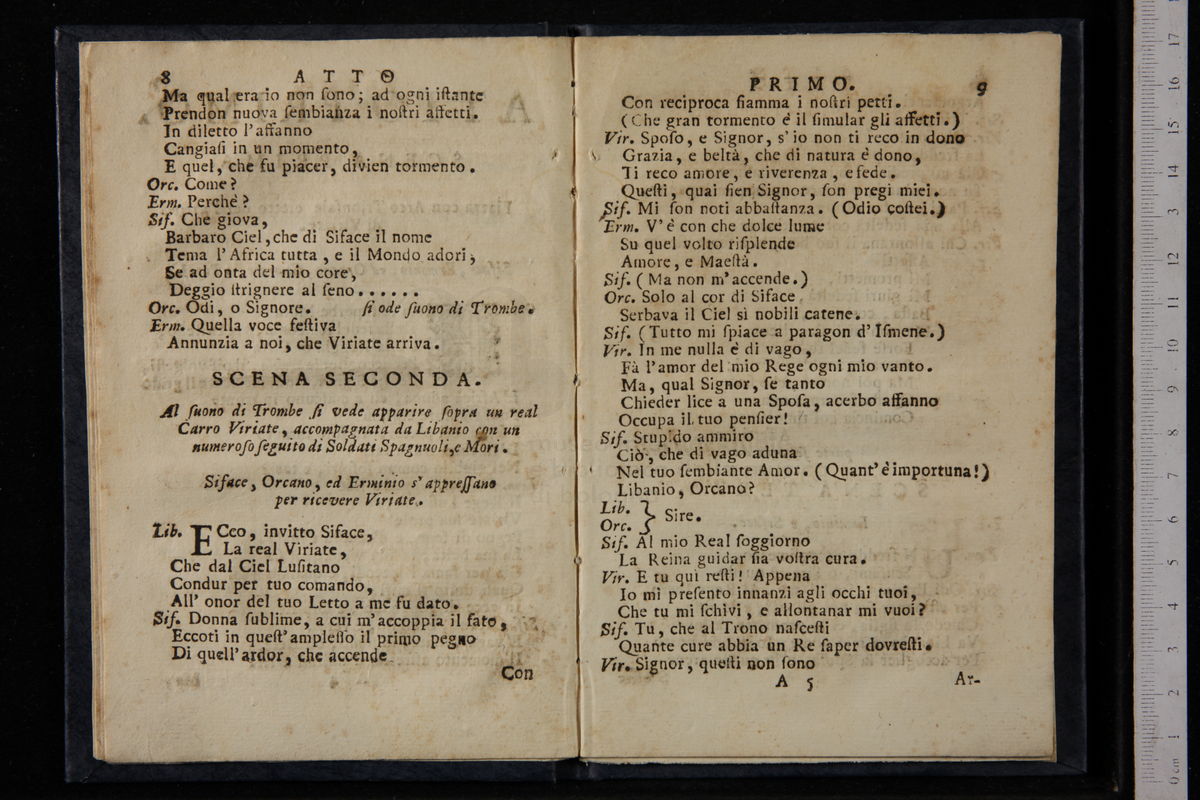 8 ATTO
Ma qual era io non ſono; ad ogni iſtante
Prendon nuova ſembianza i noſtri affetti.
In diletto l'affanno
Cangiaſi in un momento,
E quel, che fu piacer, divien tormento.
Orc. Come?
Erm. Perchè?
Sif. Che giova,
Barbaro Ciel, che di Siface il nome
Tema l'Africa tutta, e il Mondo adori,
Se ad onta del mio core,
Deggio ſtrignere al ſeno......
Orc. Odi, o Signore. ſi ode ſuono di Trombe.
Erm. Quella voce feſtiva
Annunzia a noi, che Viriate arriva.
SCENA SECONDA.
Al ſuono di Trombe ſi vede apparire ſopra un real
Carro Viriate, accompagnata da Libanio con un
numeroſo ſeguito di Soldati Spagnuoli, e Mori.
Siface, Orcano, ed Erminio s'appreſſano
per ricevere Viriate.
Lib. ECco, invitto Siface,
La real Viriate,
Che dal Ciel Luſitano
Condur per tuo comando,
All' onor del tuo Letto a me fu dato.
Sif. Donna ſublime, a cui m'accoppia il fato,
Eccoti in queſt'ampleſſo il primo pegno
Di quell'ardor, che accende
Con
PRIMO. 9
Con reciproca fiamma i noſtri petti.
(Che gran tormento è il ſimular gli affetti.)
Vir. Spoſo, e Signor, s'io non ti reco in dono
Grazia, e beltà, che di natura è dono,
Ti reco amore, e riverenza, e fede.
Queſti, quai ſien Signor, ſon pregi miei.
Sif. Mi ſon noti abbaſtanza. (Odio coſtei.)
Erm. V'è con che dolce lume
Su quel volto riſplende
Amore, e Maeſtà.
Sif. (Ma non m'accende.)
Orc. Solo al cor di Siface
Serbava il Ciel sì nobili catene.
Sif. (Tutto mi ſpiace a paragon d'Iſmene.)
Vir. In me nulla è di vago,
Fà l'amor del mio Rege ogni mio vanto.
Ma, qual Signor, ſe tanto
Chieder lice a una Spoſa, acerbo affanno
Occupa il tuo penſier!
Sif. Stupido ammiro
Ciò, che di vago aduna
Nel tuo ſembiante Amor. (Quant'è importuna!)
Libanio, Orcano?
Lib. } Sire.
Orc.
Sif. Al mio Real ſoggiorno
La Reina guidar ſia voſtra cura.
Vir. E tu qui reſti! Appena
Io mi preſento innanzi agli occhi tuoi,
Che tu mi ſchivi, e allontanar mi vuoi?
Sif. Tu, che al Trono naſceſti
Quante cure abbia un Re ſaper dovreſti.
Vir. Signor, queſti non ſono
A 5 Ar-
0 cm 1 2 3 4 5 6 7 8 9 10 11 12 13 14 15 16 17